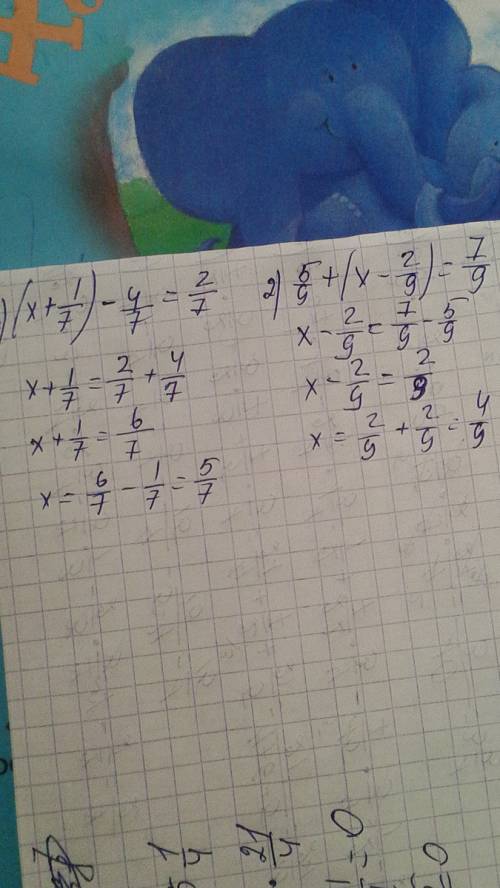 ) (x + 1/7) - 4/7 = 2/7
x + 1/7 = 2/7 + 4/7
x + 1/7 = 6/7
x = 6/7 - 1/7 = 5/7
2) 5/9 + (x - 2/9) = 7/9
x - 2/9 = 7/9 - 5/9
x - 2/9 = 2/9
x = 2/9 + 2/9 = 4/9
1/4
21/4
= 0
= 0